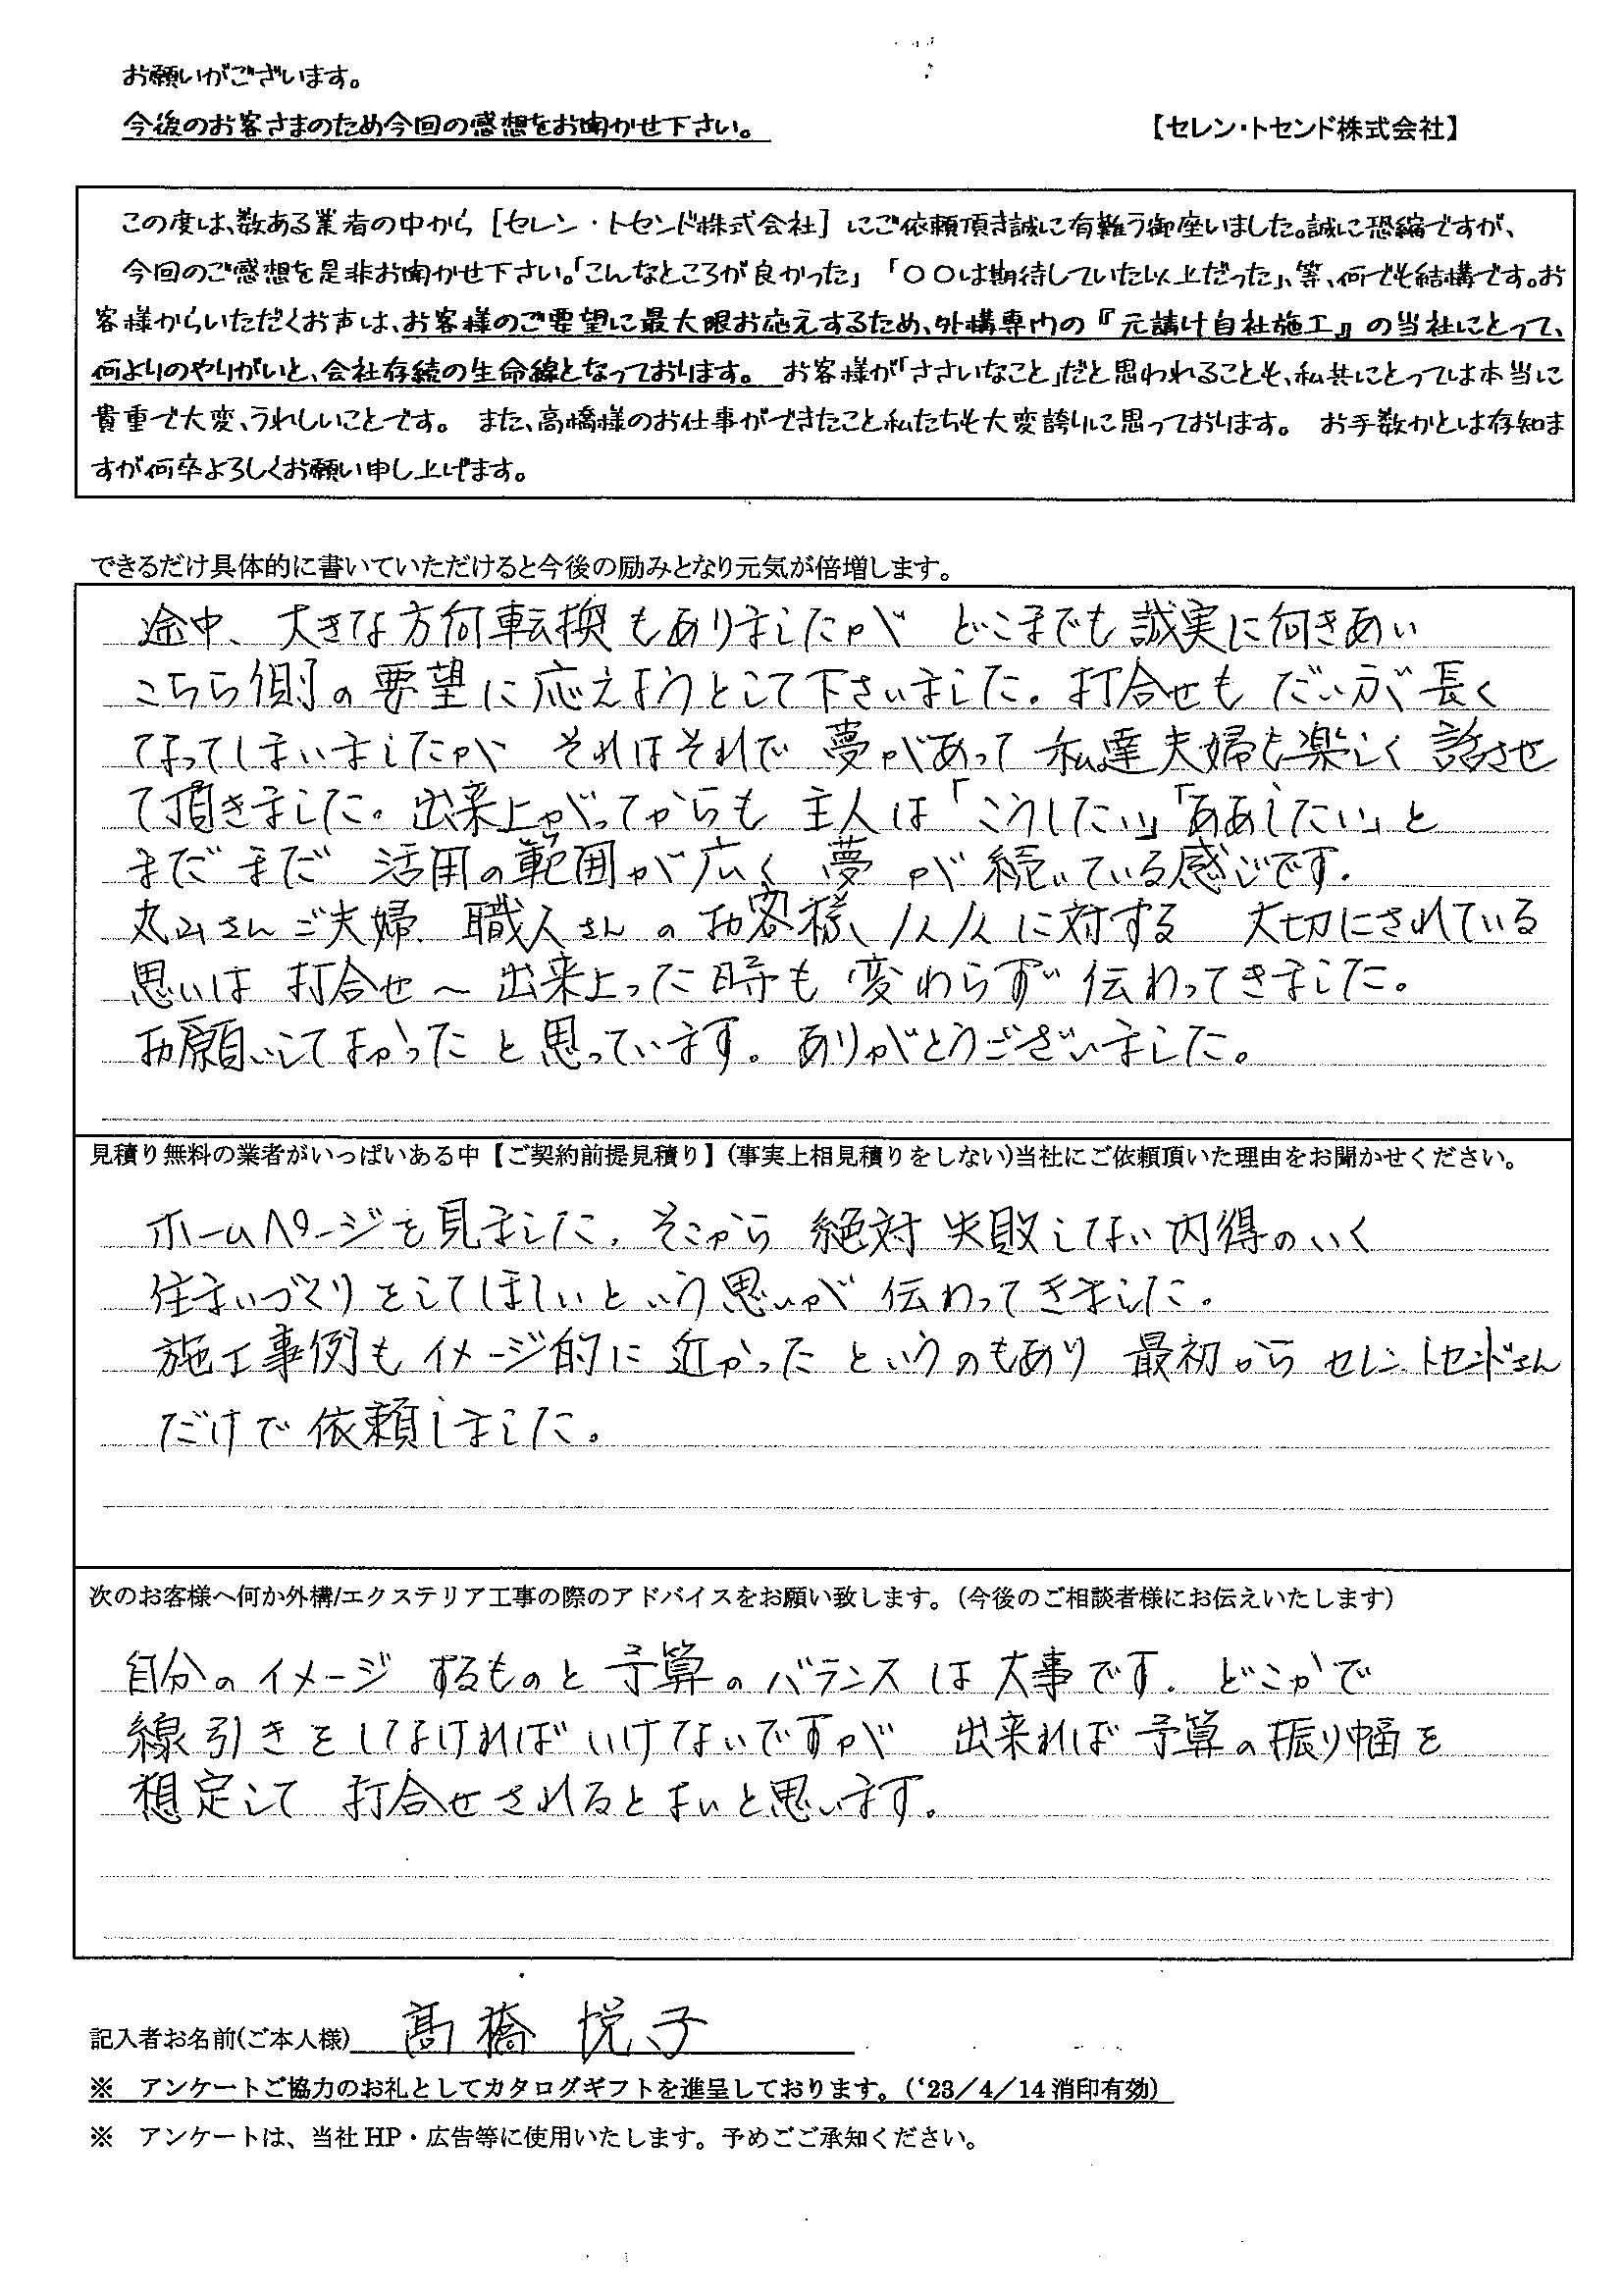 お願いがございます。
今後のお客さまのため今回の感想をお聞かせ下さい。
【セレン・トセンド株式会社】
この度は、数ある業者の中から［セレン・トセンド株式会社］にご依頼頂き誠に有難う御座いました。誠に恐縮ですが、
今回のご感想を是非お聞かせ下さい。「こんなところが良かった」「〇〇は期待していた以上だった」、等、何でも結構です。お
客様からいただくお声は、お客様のご要望に最大限お応えするため、外構専門の『元請け自社施工』の当社にとって、
何よりのやりがいと、会社存続の生命線となっております。 お客様が「ささいなこと」だと思われることも、私共にとっては本当に
貴重で大変、うれしいことです。 また、高橋様のお仕事ができたこと私たちも大変誇りに思っております。 お手数かとは存知ま
すが何卒よろしくお願い申し上げます。
できるだけ具体的に書いていただけると今後の励みとなり元気が倍増します。
途中、大きな方向転換もありましたが どこまでも誠実に向きあい
こちら側の要望に応えようとして下さいました。打合せも だいぶ長く
なってしまいましたが それはそれで 夢があって 私達夫婦も楽しく 話させ
て頂きました。出来上がってからも 主人は「こうしたい」「ああしたい」と
まだまだ 活用の範囲が広く 夢 が 続いている感じです。
丸山さんご夫婦、職人さん のお客様、1人1人に対する 大切にされている
思いは 打合せ～出来上った時も 変わらず 伝わってきました。
お願いしてよかったと思っています。ありがとうございました。
見積り無料の業者がいっぱいある中【ご契約前提見積り】（事実上相見積りをしない）当社にご依頼頂いた理由をお聞かせください。
ホームページを見ました。そこから 絶対失敗しない内得のいく
住まいづくりをしてほしいという思いが 伝わってきました。
施工事例もイメージ的に 近かったというのもあり 最初から セレントセンドさん
だけで依頼しました。
次のお客様へ何か外構/エクステリア工事の際のアドバイスをお願い致します。（今後のご相談者様にお伝えいたします）
自分のイメージ するものと予算のバランスは大事です。どこかで
線引きをしなければいけないですが 出来れば予算の振り幅を
想定して 打合せされるとよいと思います。
記入者お名前(ご本人様) 髙橋 悦子
※ アンケートご協力のお礼としてカタログギフトを進呈しております。（‘23／4／14消印有効）
※ アンケートは、当社HP・広告等に使用いたします。予めご承知ください。